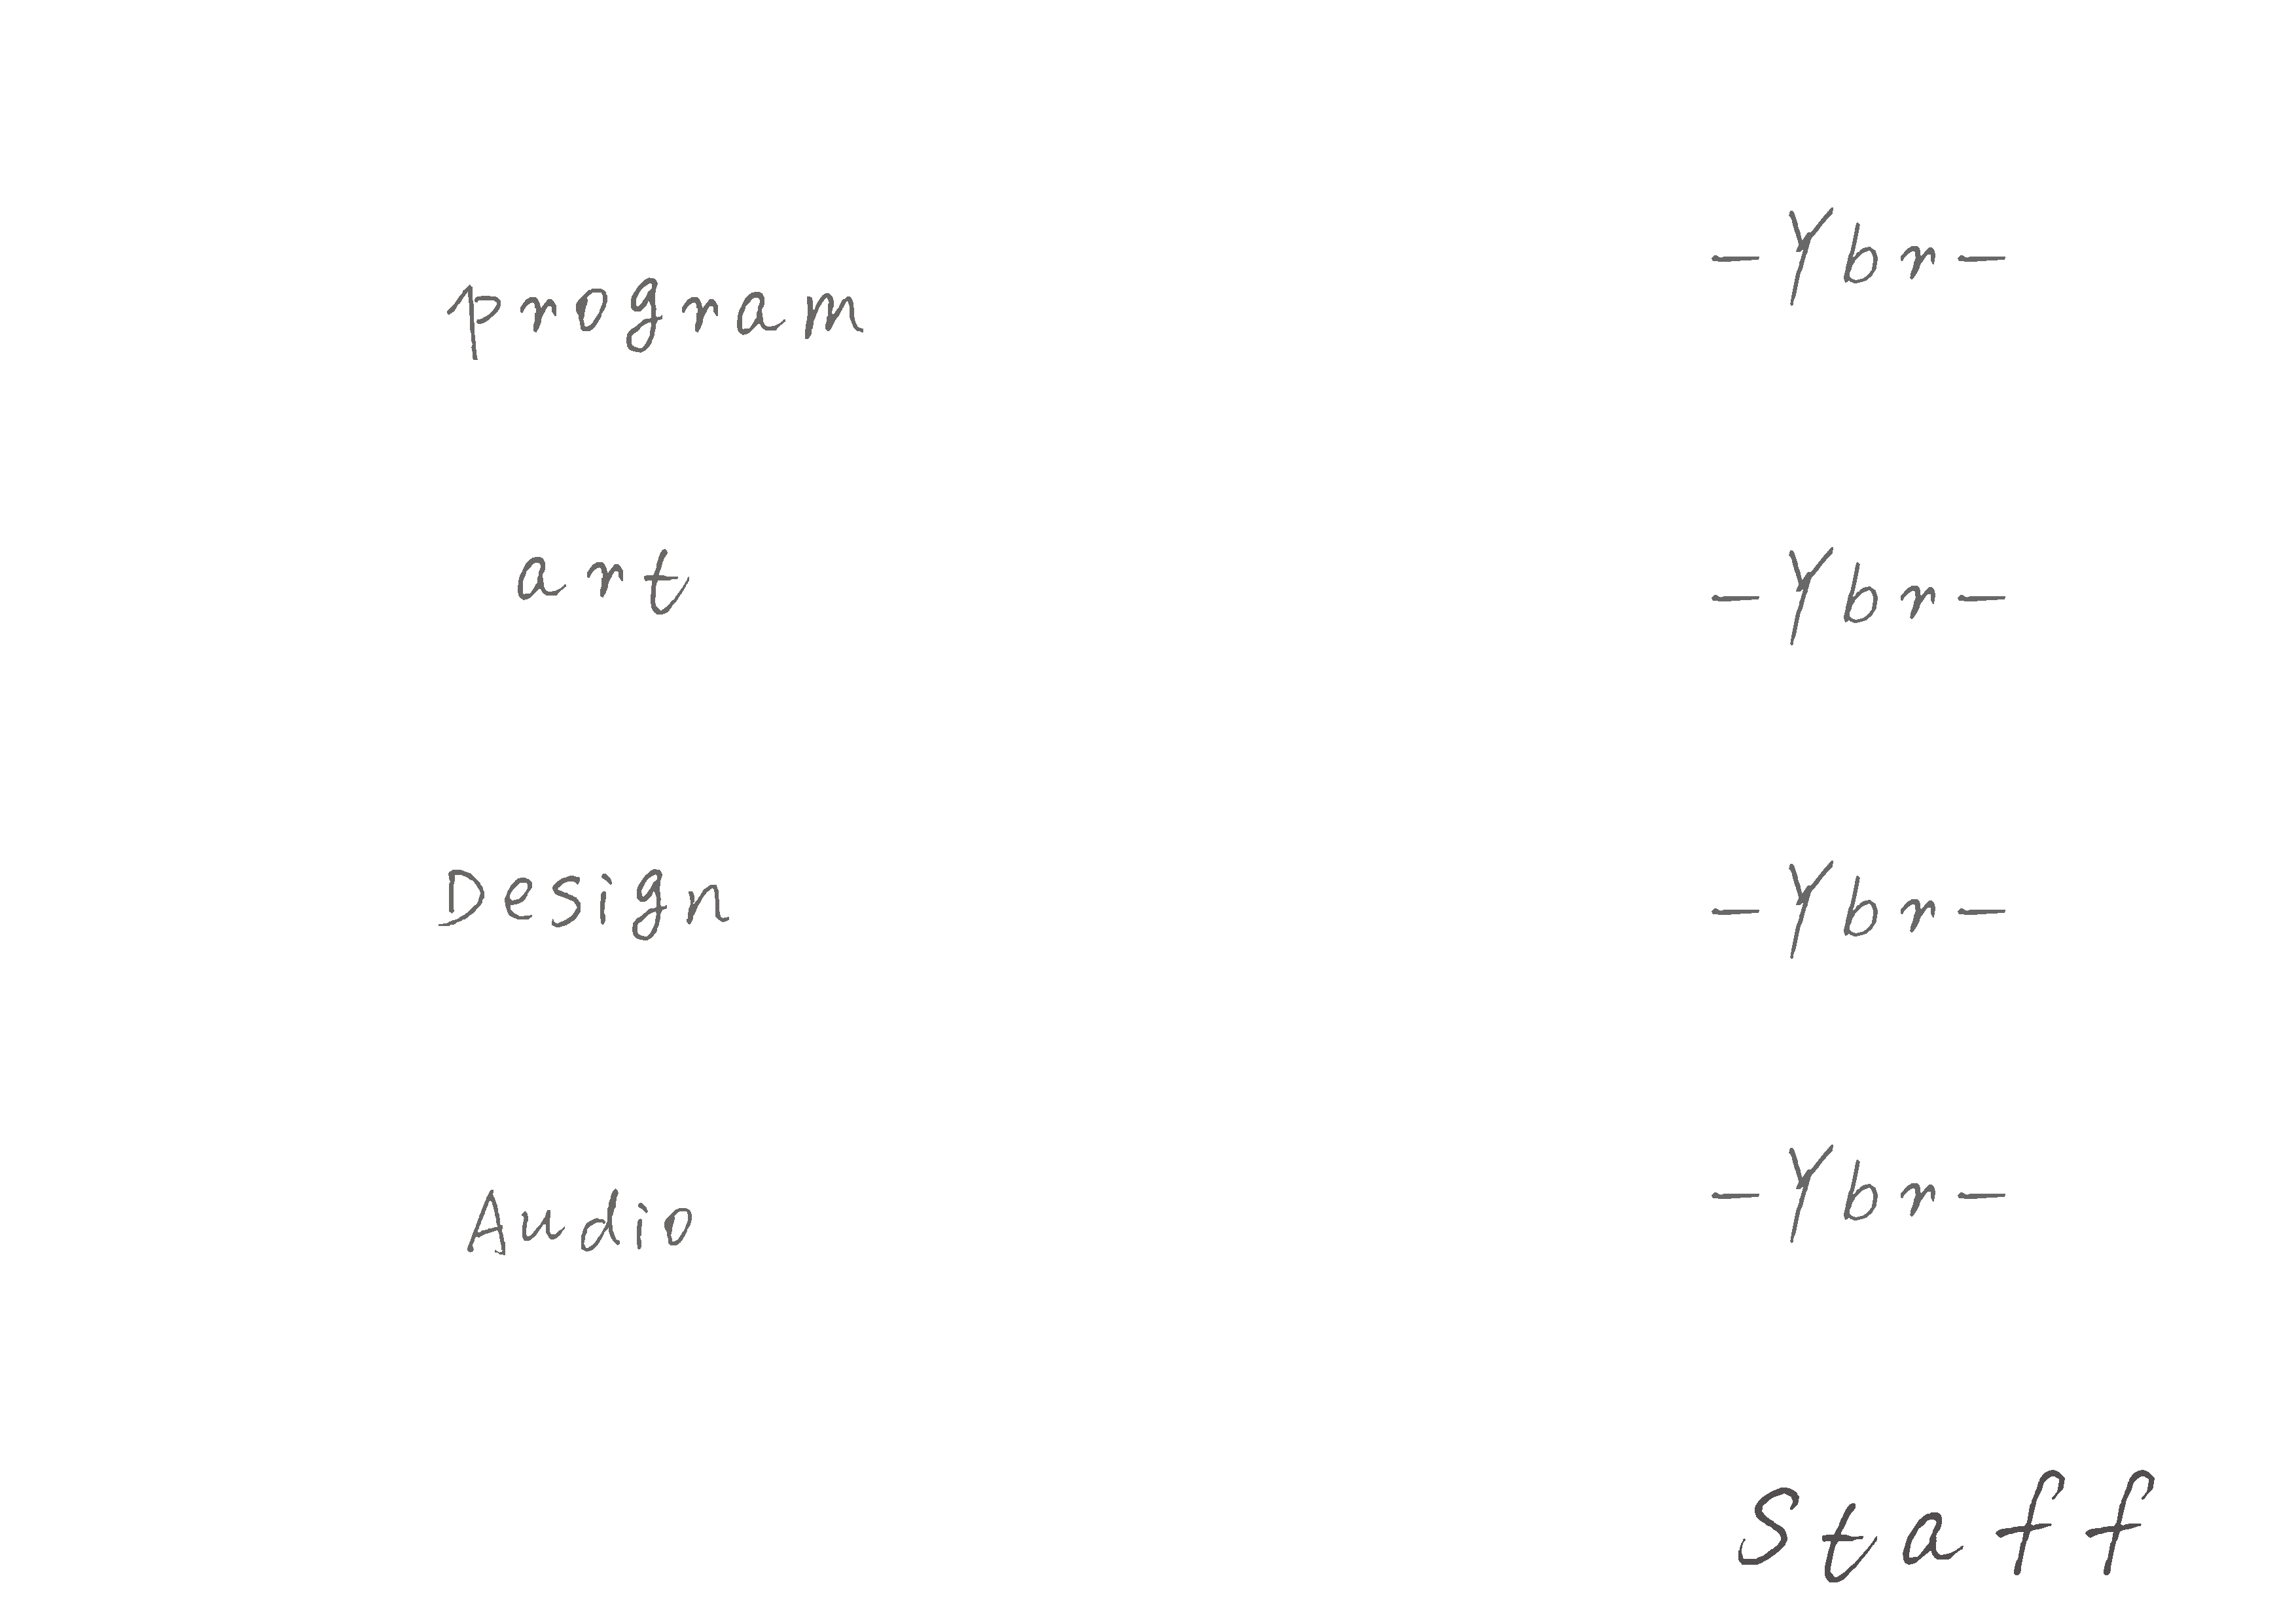 program -Ybr-
art -Ybr-
Design -Ybr-
Audio -Ybr-
Staff